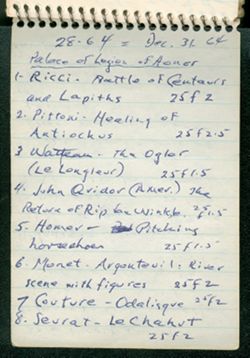 28-64 = Dec. 31 64
Palace of Legion of Honor
1- Ricci - Battle of Centaurs
and Lapiths 25 f 2
2. Pittoni - Healing of
Antiochus 25 f 2.5
3 Watteau - The Ogler
(Le Lorgleur) 25 f 1.5
4. John Quidor (Amer.) The
Return of Rip Van Winkle. 25 f 1.5
5. Homer - Pitching
horseshoes 25 f 1.5
6. Monet - Argenteuil: River
scene with figures 25 f 2
7 Couture - Odalisque 25 f 2
8- Seurat - Le Chahut
25 f 2